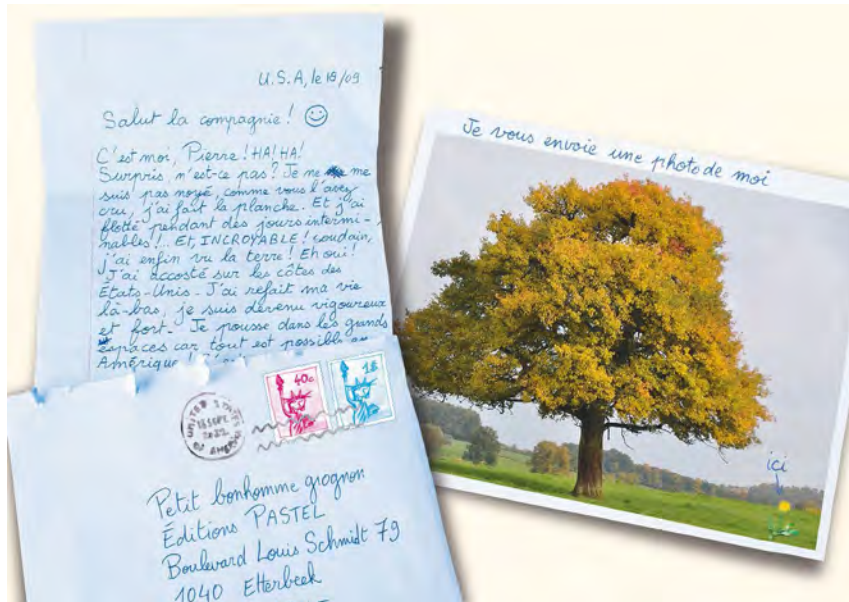 U.S.A, le 18/09
Salut la compagnie !
C'est moi, Pierre ! HA ! HA !
Surpris, n'est-ce pas ? Je ne me
suis pas noyé, comme vous l'avez
cru, j'ai fait la planche. Et j'ai
flotté pendant des jours intermi-
nables !... Et, INCROYABLE ! soudain,
j'ai enfin vu la terre ! Eh oui !
J'ai accosté sur les côtes des
États-Unis. J'ai refait ma vie
là-bas, je suis devenu vigoureux
et fort. Je pousse dans les grands
espaces car tout est possible en
Amérique !
UNITED STATES
18 SEPT.
OF AMERICA
40c
1$
Petit bonhomme grognon
Éditions PASTEL
Boulevard Louis Schmidt 79
1040 Etterbeek
Je vous envoie une photo de moi
ici